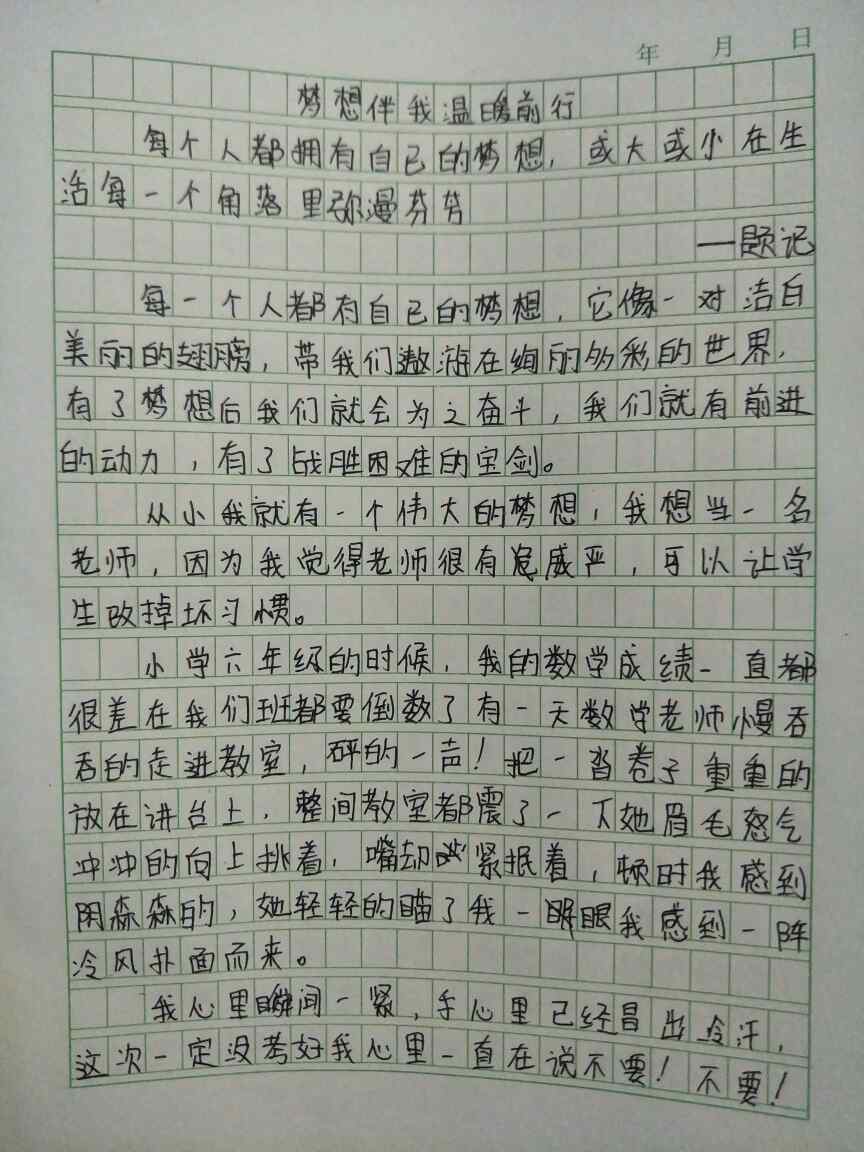 年 月 日
梦想伴我温暖前行
每个人都拥有自己的梦想，或大或小在生
活每一个角落里弥漫芬芳
——题记
每一个人都有自己的梦想，它像一对洁白
美丽的翅膀，带我们遨游在绚丽多彩的世界，
有了梦想后我们就会为之奋斗，我们就有前进
的动力，有了战胜困难的宝剑。
从小我就有一个伟大的梦想，我想当一名
老师，因为我觉得老师很有威严，可以让学
生改掉坏习惯。
小学六年级的时候，我的数学成绩一直都
很差在我们班都要倒数了有一天数学老师慢吞
吞的走进教室，砰的一声！把一沓卷子重重的
放在讲台上，整间教室都震了一下她眉毛怒气
冲冲的向上挑着，嘴却紧抿着，顿时我感到
阴森森的，她轻轻的瞄了我一眼我感到一阵
冷风扑面而来。
我心里瞬间一紧，手心里已经冒出冷汗，
这次一定没考好我心里一直在说不要！不要！